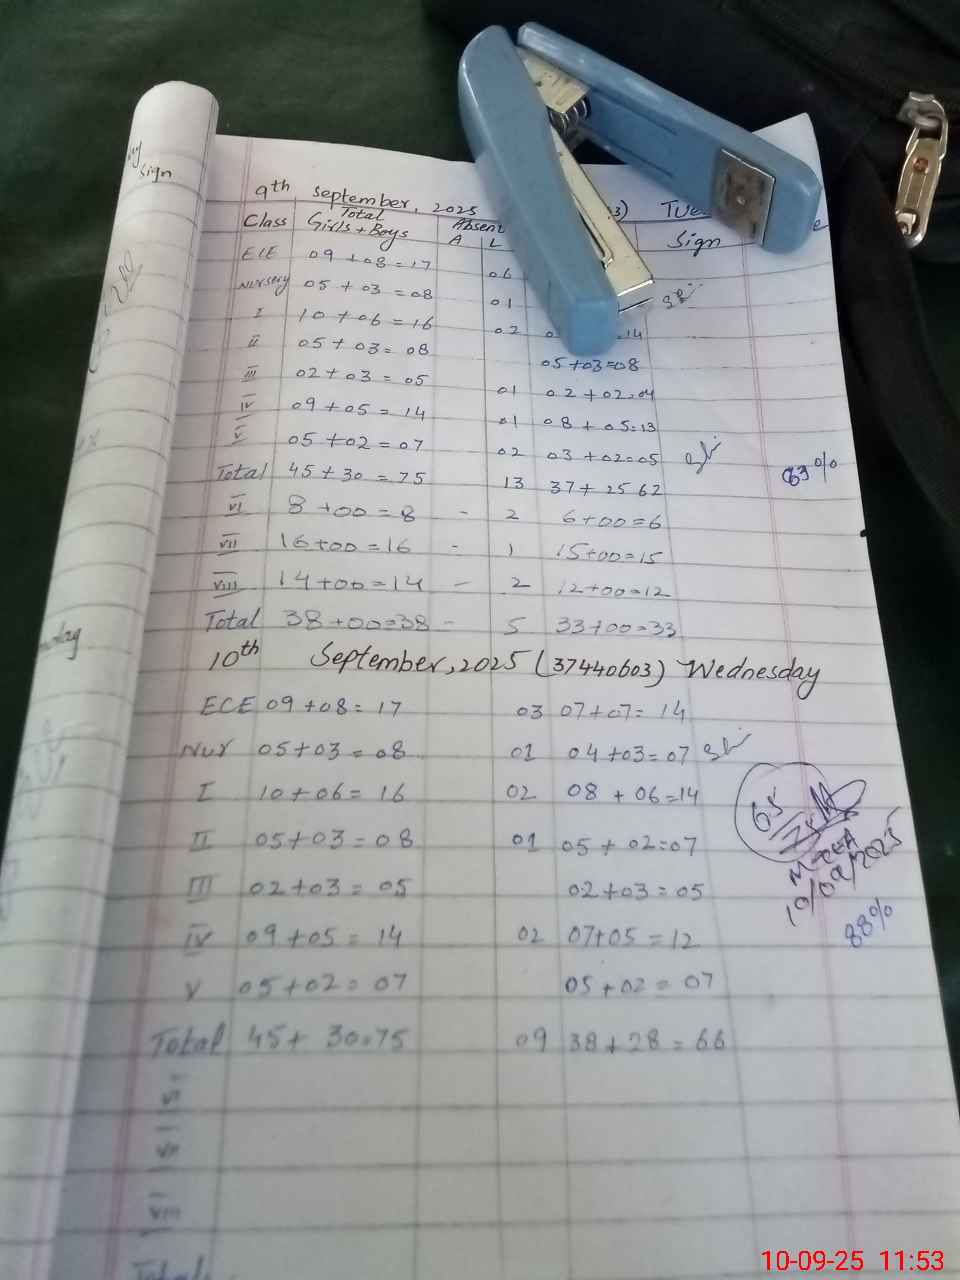 sign
9th September, 2025 3)
Class Total Girls + Boys Absent A L Sign
ECE 09 + 08 = 17 06
Nursery 05 + 03 = 08 01
I 10 + 06 = 16 02 14
ii 05 + 03 = 08 05 + 03 = 08
III 02 + 03 = 05 01 02 + 02 = 04
IV 09 + 05 = 14 01 08 + 05 = 13
V 05 + 02 = 07 02 03 + 02 = 05
Total 45 + 30 = 75 13 37 + 25 62 83%
VI 8 + 00 = 8 - 2 6 + 00 = 6
VII 16 + 00 = 16 - 1 15 + 00 = 15
VIII 14 + 00 = 14 - 2 12 + 00 = 12
Total 38 + 00 = 38 - 5 33 + 00 = 33
10th September, 2025 (37440603) Wednesday
ECE 09 + 08 = 17 03 07 + 07 = 14
Nur 05 + 03 = 08 01 04 + 03 = 07
I 10 + 06 = 16 02 08 + 06 = 14
65
II 05 + 03 = 08 01 05 + 02 = 07
M-CEA
10/09/2025
III 02 + 03 = 05 02 + 03 = 05
IV 09 + 05 = 14 02 07 + 05 = 12
88%
V 05 + 02 = 07 05 + 02 = 07
Total 45 + 30 = 75 09 38 + 28 = 66
VI
VII
VIII
Total
10-09-25 11:53